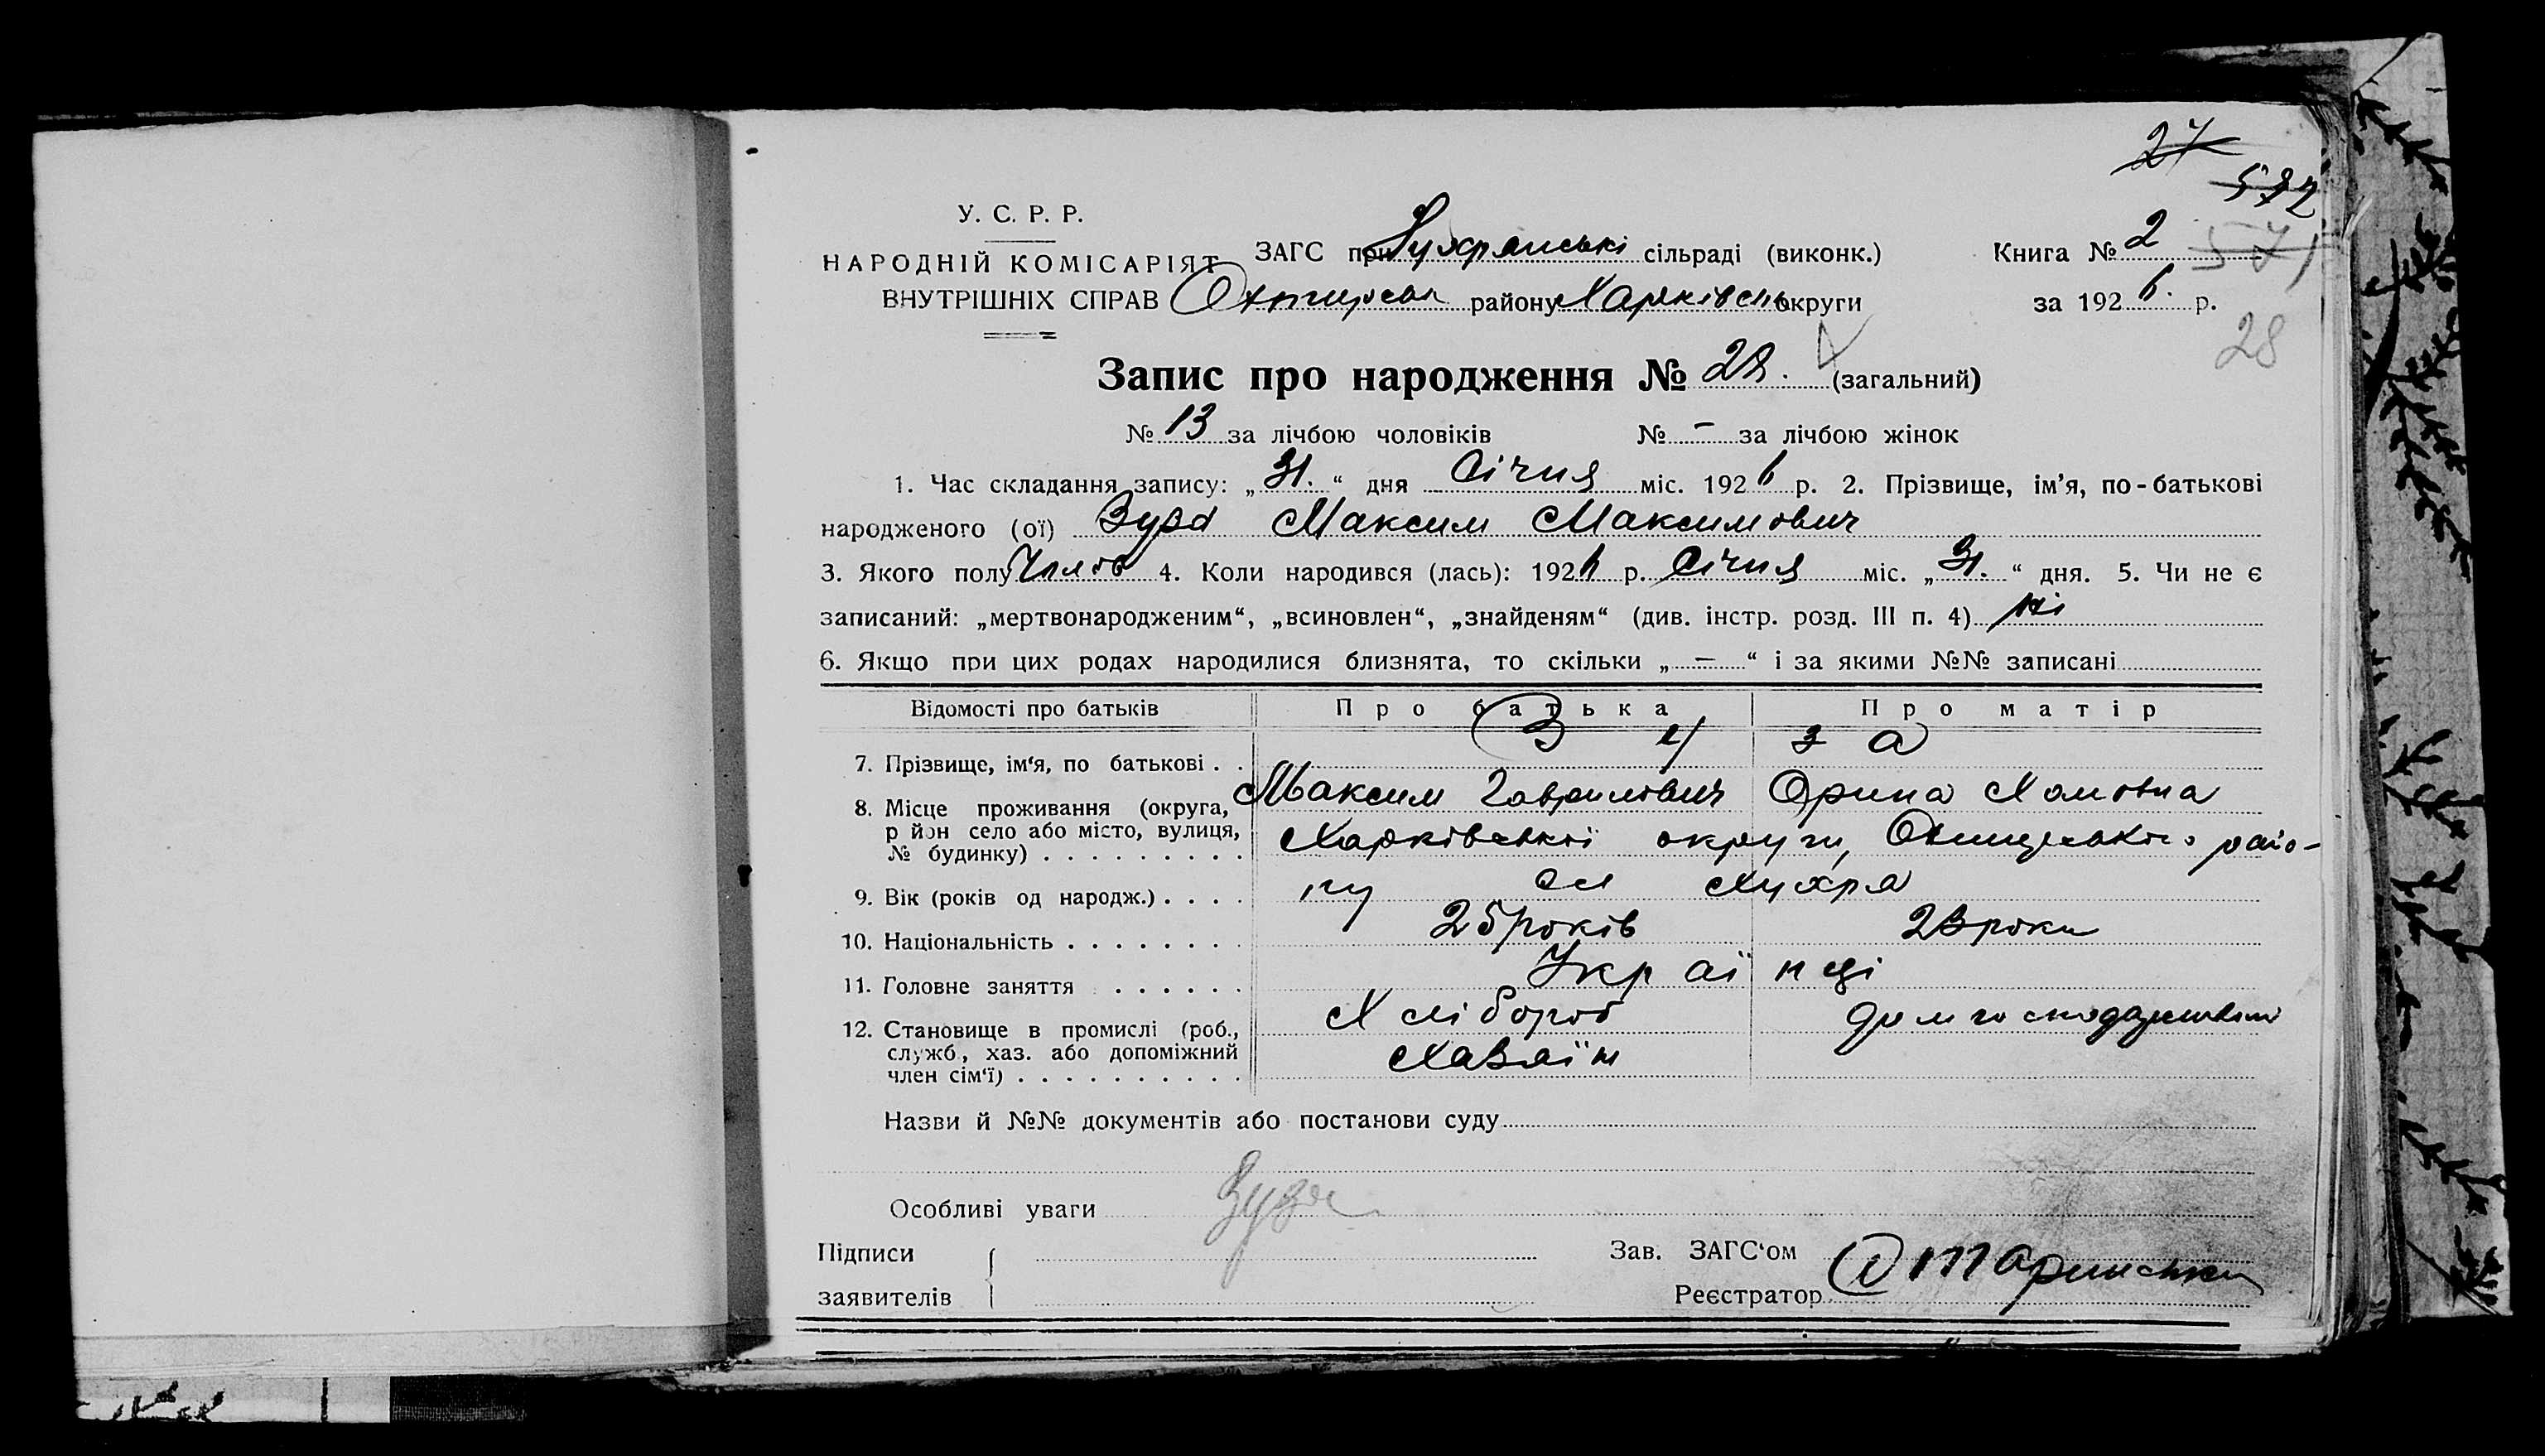 27
572
У. С. Р. Р.
НАРОДНІЙ КОМІСАРІЯТ
ВНУТРІШНІХ СПРАВ
571
ЗАГС при сільраді (виконк.)
Охтирськ району Харківськ округи
Книга № 2
за 1926. р.
28
Запис про народження № 28. (загальний)
№ 13 за лічбою чоловіків № – за лічбою жінок
1. Час складання запису: „31.“ дня Січня міс. 1926 р. 2. Прізвище, ім’я, по-батькові
народженого (ої) Зуза Максим Максимович
3. Якого полу Чолов 4. Коли народився (лась): 1926 р. Січня міс. „31.“ дня. 5. Чи не є
записаний: „мертвонародженим“, „всиновлен“, „знайденям“ (див. інстр. розд. III п. 4) ні
6. Якщо при цих родах народилися близнята, то скільки „ – “ і за якими №№ записані
Відомості про батьків Про батька Про матір
З у з а
7. Прізвище, ім‘я, по батькові . .
Максим Гаврилович Орина Хомовна
8. Місце проживання (округа,
р йон село або місто, вулиця,
№ будинку) . . . . . . . . .
Харківської округи, Охтирського райо-
ну
9. Вік (років од народж.) . . . .
25 років 23 роки
10. Національність . . . . . . . .
Українці
11. Головне заняття . . . . . .
Хлібороб домгосподарством
12. Становище в промислі (роб.,
служб., хаз. або допоміжний
член сім‘ї) . . . . . . . . . .
Хазяїн
Назви й №№ документів або постанови суду
Особливі уваги Зуза
Підписи
заявителів
Зав. ЗАГС‘ом
Реєстратор